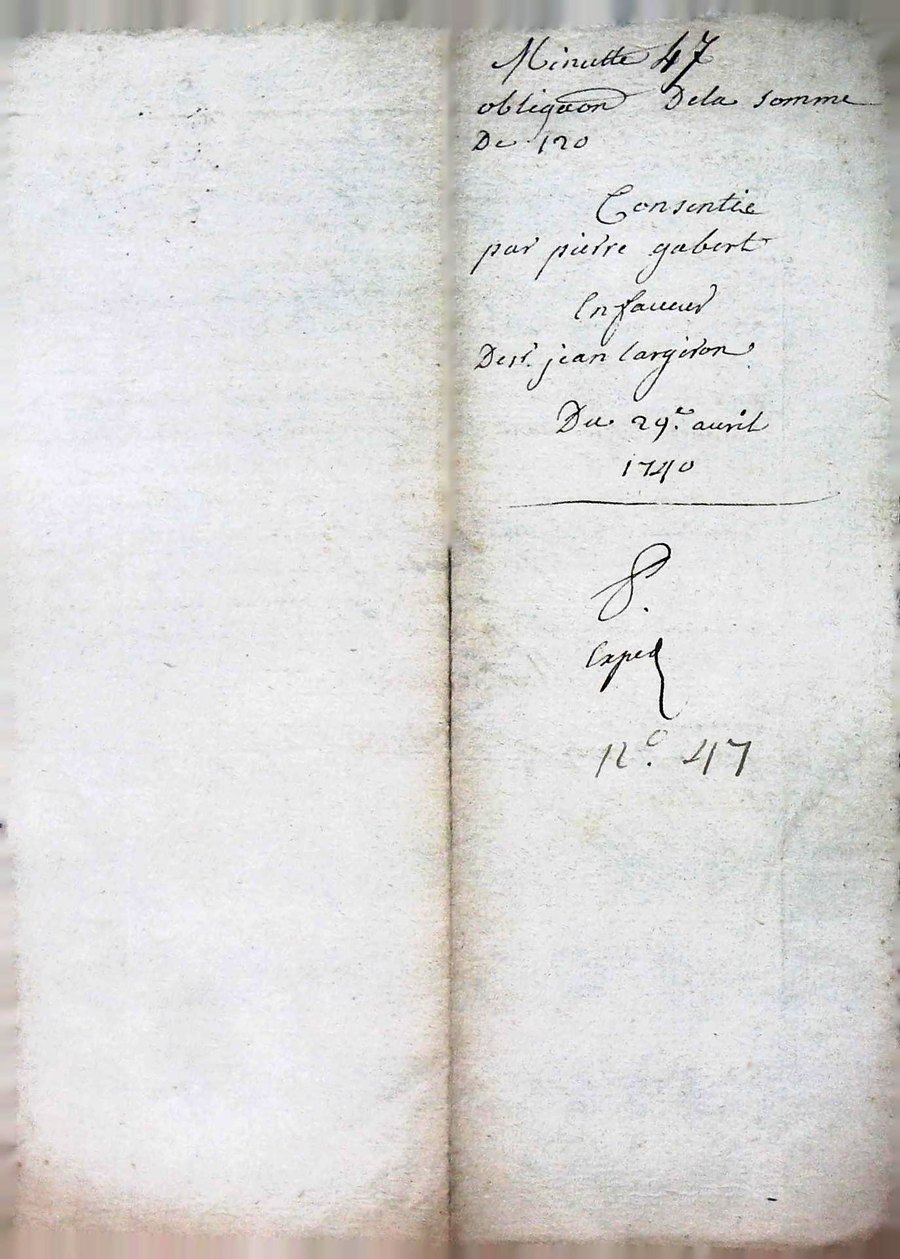 Minutte 47
obligaon Dela somme
De 120
Consentie
par pierre gabert
Enfaueur
Desr. jean largeron
Du 29.e auril
1740
Exped
n.o 47